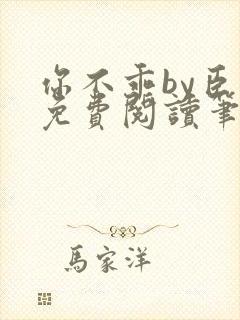 你不乖by臣
免費閱讀筆
馬家洋